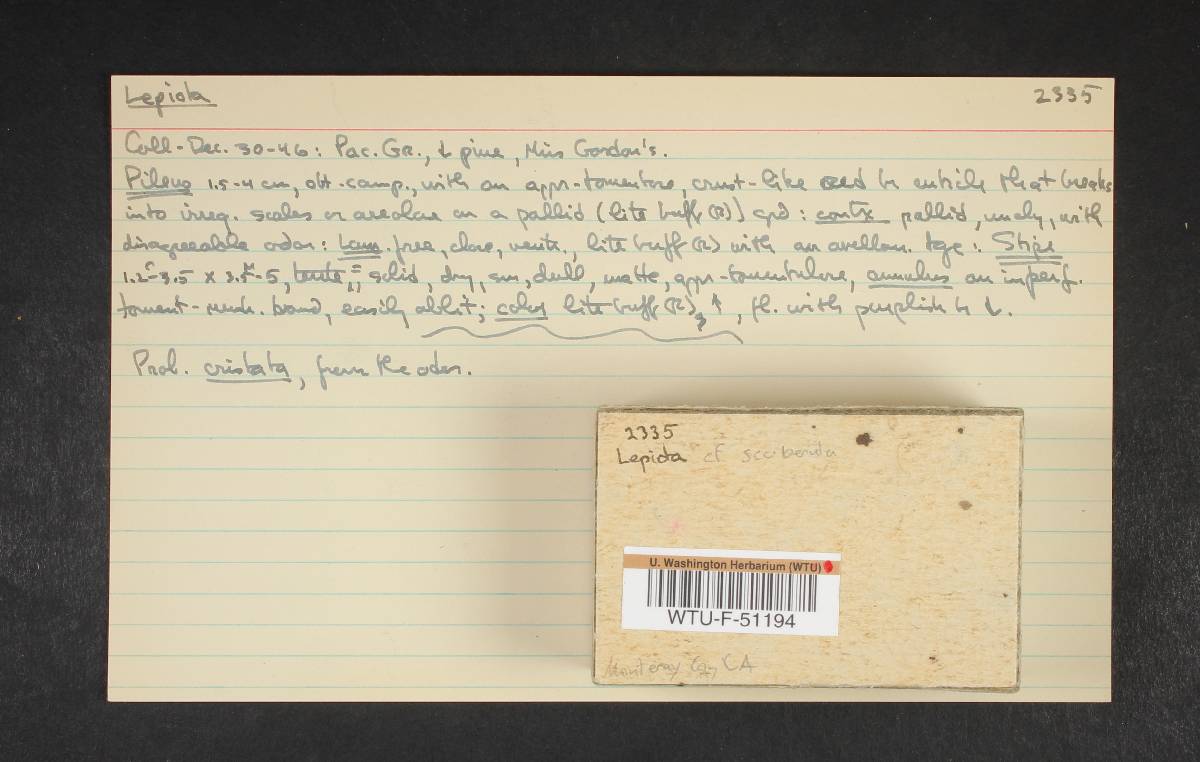 Lepiota 2335
Coll - Dec. 30-46: Pac. Gr., pine, Miss Gordon's.
Pileus 1.5-4 cm, obt-camp., with an appr-tomentose, crust-like that breaks
into irreg. scales or areolae on a pallid (lite buff (R)) grd: contx pallid, with
disagreeable odor: Lam. free, close, ventr., lite buff (R) with an avellan. tge: Stipe
1.2-3.5 x 3.5-5, solid, dry, sm, dull, matte, appr-tomentulose, annulus an imperf.
toment-memb. band, easily oblit; color lite buff (R), fl. with purplish
Prob. cristata, from the odor.
2335
Lepiota cf
U. Washington Herbarium (WTU)
WTU-F-51194
Monterey Co, CA